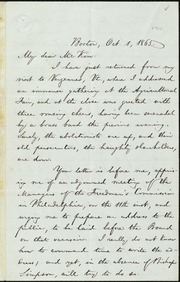 Boston, Oct. 1, 1865.
My dear McKim:
I have just returned from my
visit to Vergennes, Vt., where I addressed
an immense gathering at the Agricultural
Fair, and at the close was greeted with
three rousing cheers, having been
by a band from the
Surely, the abolitionists are up, and
their old persecutors, the haughty slaveholders,
are down.
Your letter is before me, apprising
me of an adjourned meeting of the
Managers of the Freedmen's Commission
in Philadelphia, on the 11th inst., and
urging me to prepare an address to the
public, to be laid before the Board
on that occasion. I really do not know
how to command time to write the address;
and yet, in the absence of Bishop
Simpson, will try to do so.